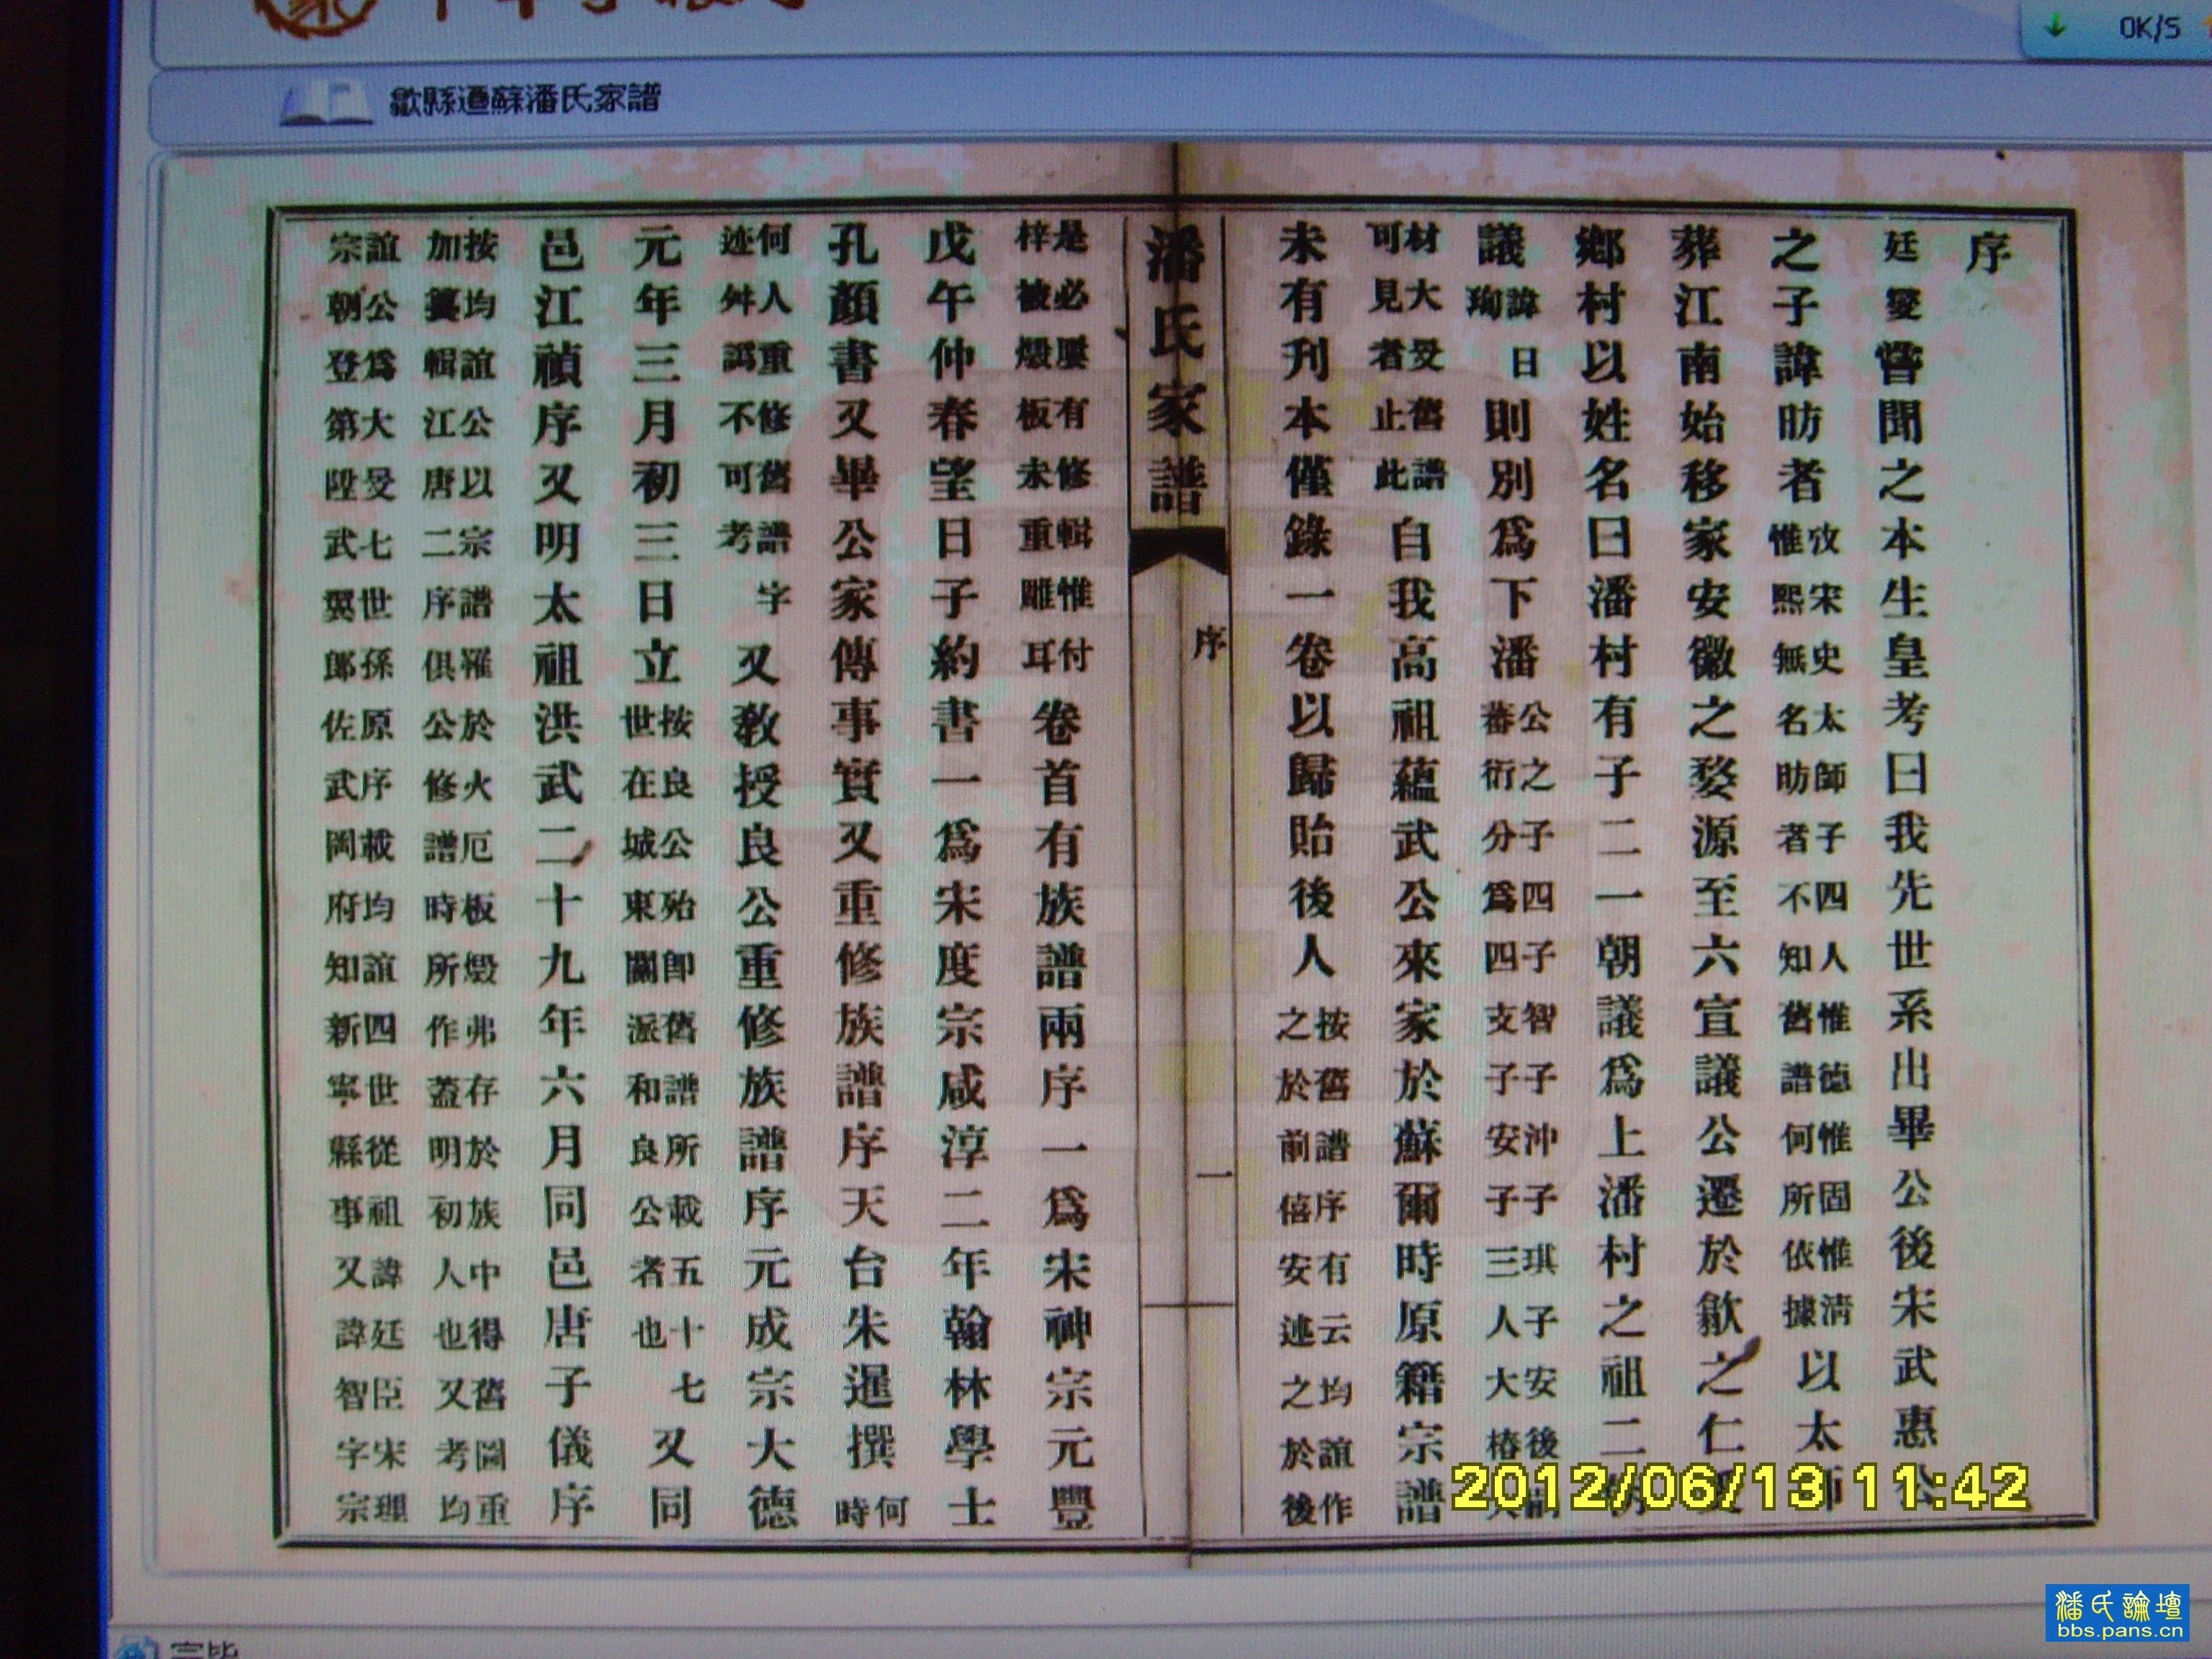 OK/S
歙縣遷蘇潘氏家譜
序
廷燮嘗聞之本生皇考曰我先世系出畢公後宋武惠公
之子諱昉者攷宋史太師子四人惟德惟固惟清惟熙無名昉者不知舊譜何所依據以太師
葬江南始移家安徽之婺源至六宣議公遷於歙之仁
鄉村以姓名曰潘村有子二一朝議爲上潘村之祖二
議諱珣曰則別爲下潘公之子子四子智子沖子琪子安後蕃衍分爲四支子安子三人大椿
材大受舊譜可見者止此自我高祖蘊武公來家於蘇爾時原籍宗譜
未有刋本僅錄一卷以歸貽後人按舊譜序有云均誼作之於前僖安述之於後
潘氏家譜
序
一
是必屢有修輯惟付梓被燬板未重雕耳卷首有族譜兩序一爲宋神宗元豐
戊午仲春望日子約書一爲宋度宗咸淳二年翰林學士
孔顏書又畢公家傳事實又重修族譜序天台朱暹撰何時
何人重修舊譜字迹舛譌不可考又敎授良公重修族譜序元成宗大德
元年三月初三日立按良公殆卽舊譜所載五十七世在城東關派和良公者也又同
邑江禎序又明太祖洪武二十九年六月同邑唐子儀序
按均誼公以宗譜罹於火厄板燬弗存於族中得舊圖重加纂輯江唐二序俱公修譜時所作蓋明初人也又考均
誼公爲大受七世孫原序載均誼四世從祖諱廷臣宋理宗朝登第陞武翼郎佐武岡府知新寧縣事又諱智字宗
2012/06/13 11:42
潘氏論壇
bbs.pans.cn